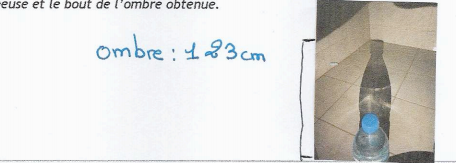 euse et le bout de l'ombre obtenue.
ombre : 123 cm